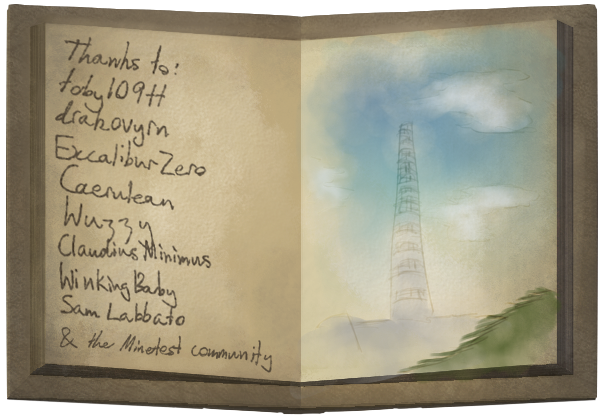 Thanks to:
toby109tt
drakovyrn
ExcaliburZero
Caerulean
Wuzzy
Claudius Minimus
WinkingBaby
Sam Labbato
& the Minetest community